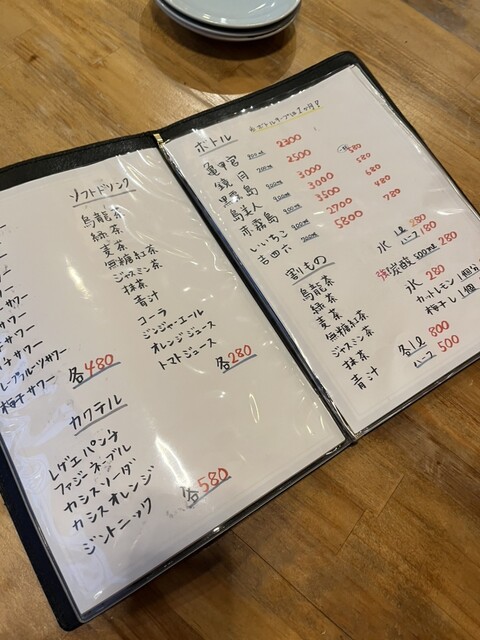 サワー
サワー
チサワー
ープフルーツサワー
梅干サワー
各480
ソフトドリンク
烏龍茶
緑茶
麦茶
無糖紅茶
ジャスミン茶
抹茶
青汁
コーラ
ジンジャーエール
オレンジジュース
トマトジュース
各280
カクテル
レゲエパンチ
ファジーネーブル
カシスソーダ
カシスオレンジ
ジントニック
各580
ボトル
亀甲宮 2300
鏡月 2500
黒霧島 900ml 3000
島美人 900ml 3000
赤霧島 900ml 3500
いいちこ 900ml 2700
吉四六 5800
580
580
680
480
780
割もの
烏龍茶
緑茶
麦茶
無糖紅茶
ジャスミン茶
抹茶
青汁
各1L 800
ハーフ 500
水 1L 280
強炭酸 500ml 280
氷 280
カットレモン
梅干し 1個